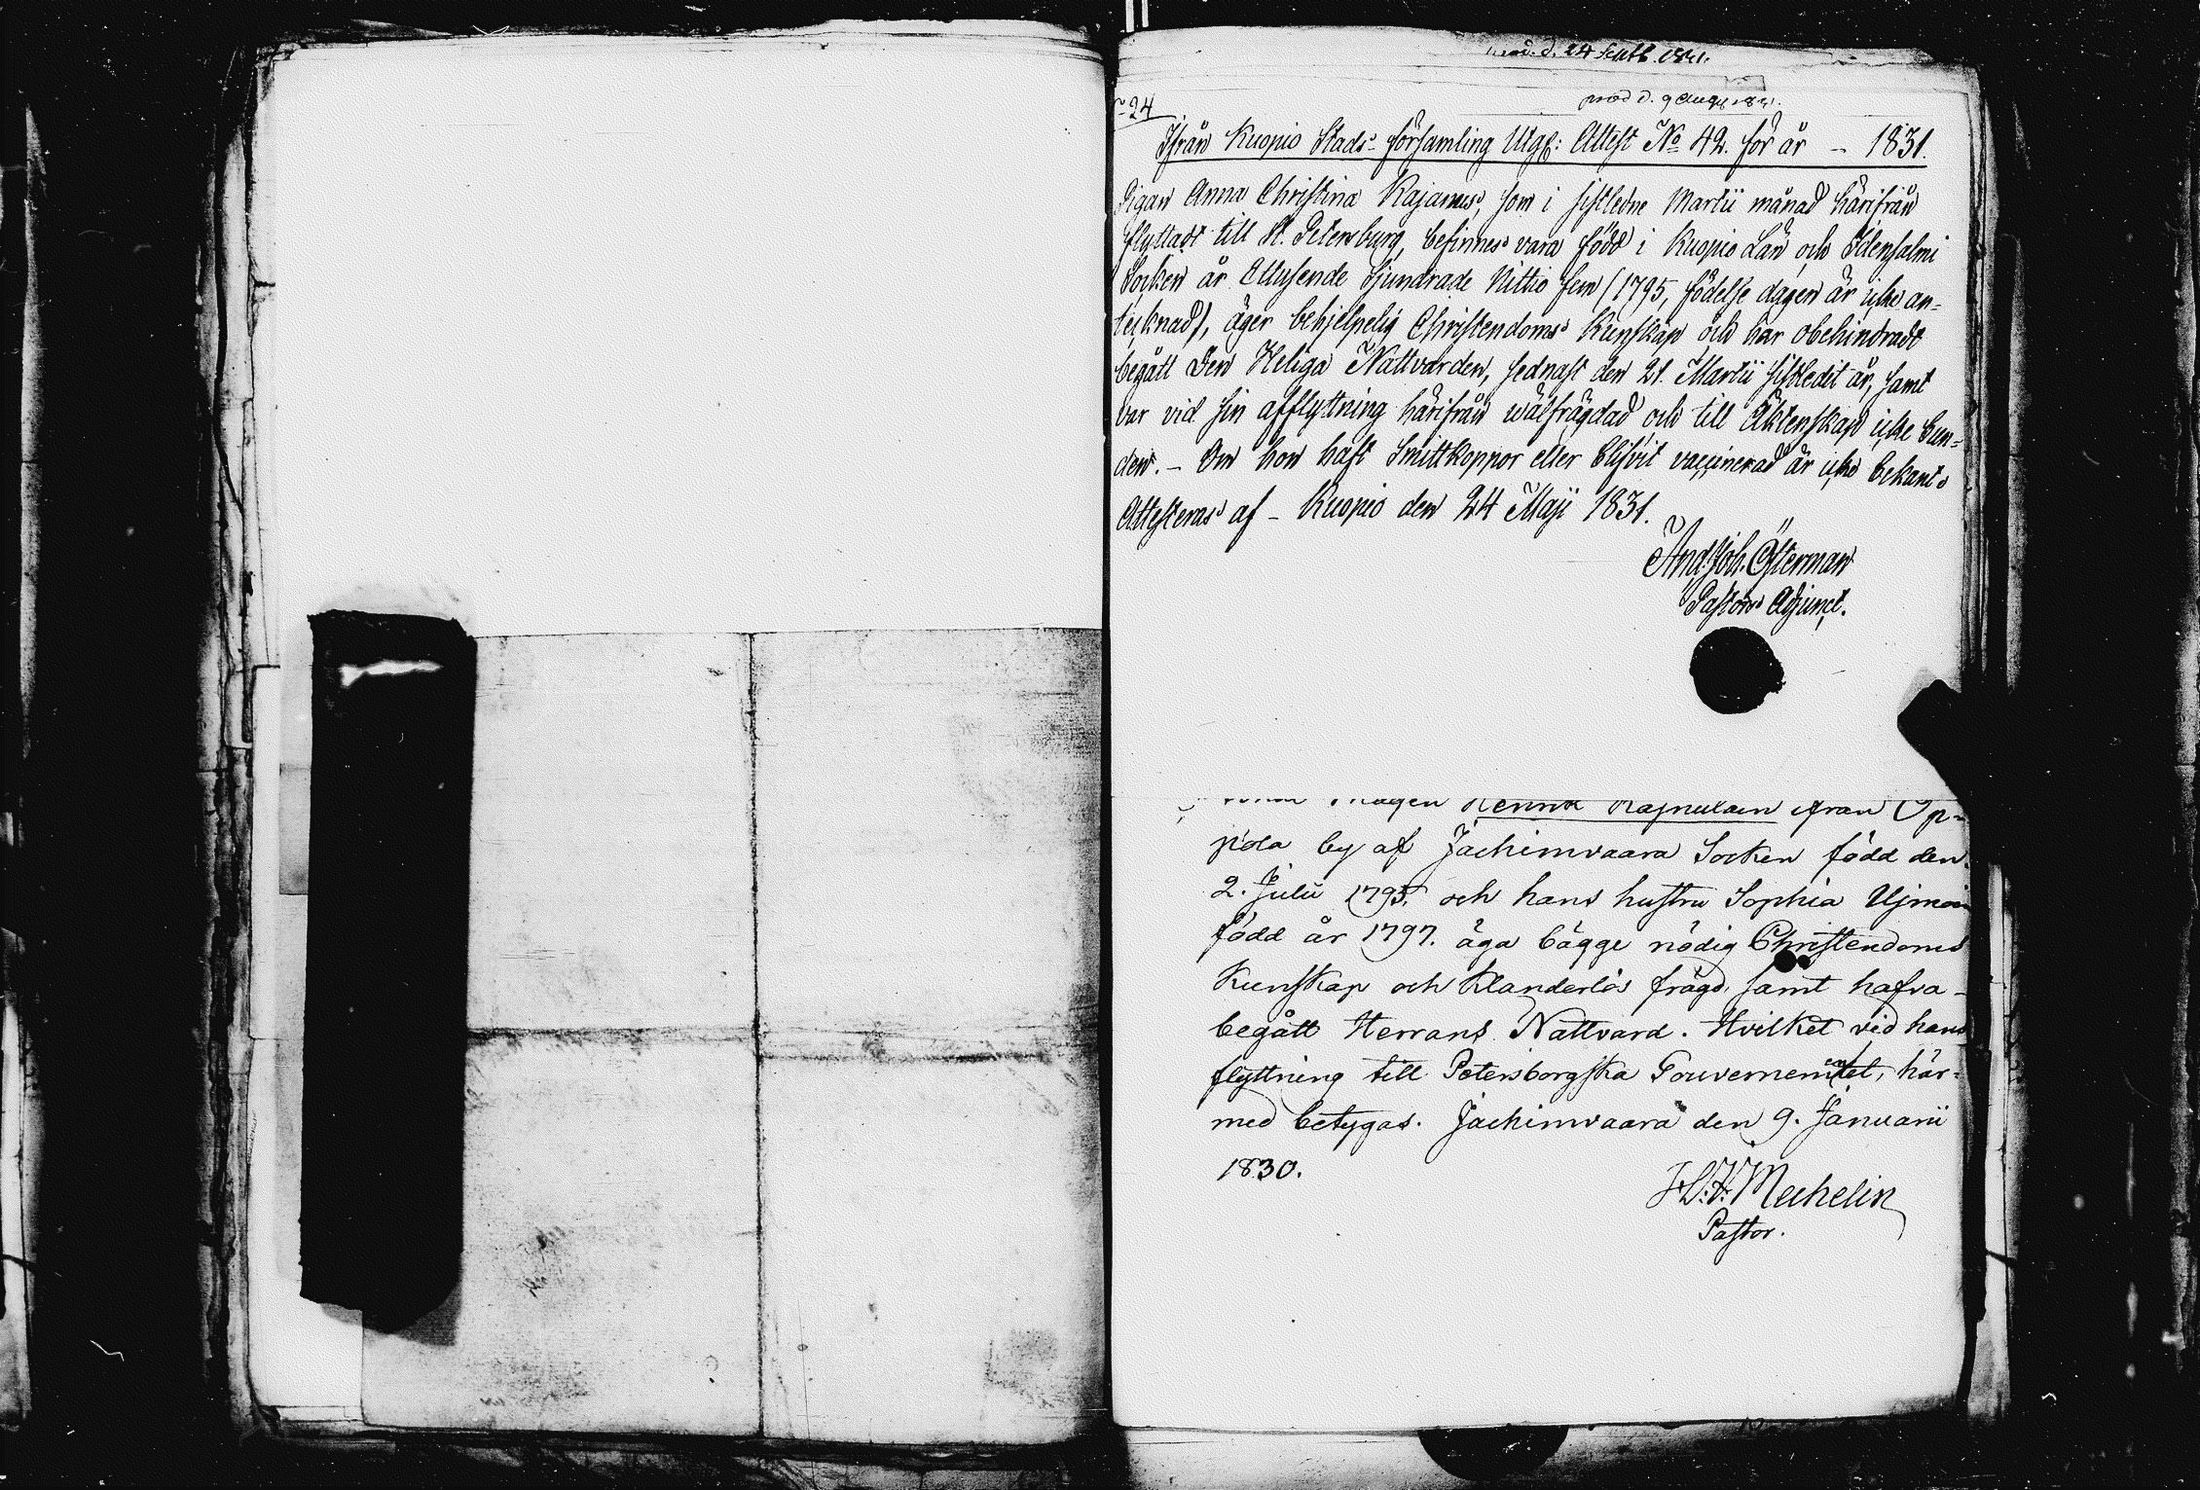 prod. d. 24 Septb. 1831.
prod d. 9 Aug 1831.
24
Ifrån Kuopio Stads-församling Utgf: Attest No 42. för år - 1831.
Pigan Anna Christina Kajanus, som i sistledne Martii månad härifrån
flyttadt till St. Petersburg, befinnes vara född i Kuopio Län och Idensalmi
Socken år Ettusende Sjundrade Nittio fem (1795, födelse dagen är icke an-
tecknad), äger behjelpelig Christendoms Kunskap och har obehindradt
begått Den Heliga Nattvarden, sednast den 21. Martii sistledit år, samt
var vid sin afflyttning härifrån wälfrägdad och till Äktenskap icke bun-
den. - Om hon haft Smittkoppor eller blifvit vaccinerad är icke bekant.
Attesteras af - Kuopio den 24 Maji 1831.
And. Joh. Österman
Pastors Adjunct.
Henrik ifrån Op-
pola by af Jachimvaara Socken född den
2. Julii 1795. och hans hustru Sophia
född år 1797. äga bägge nödig Christendoms
Kunskap och klanderlös frägd, samt hafva
begått Herrans Nattvard. Hvilket vid hans
flyttning till Petersborgska Gouvernementet, här-
med betygas. Jachimvaara den 9. Januarii
1830.
Mechelin
Pastor.